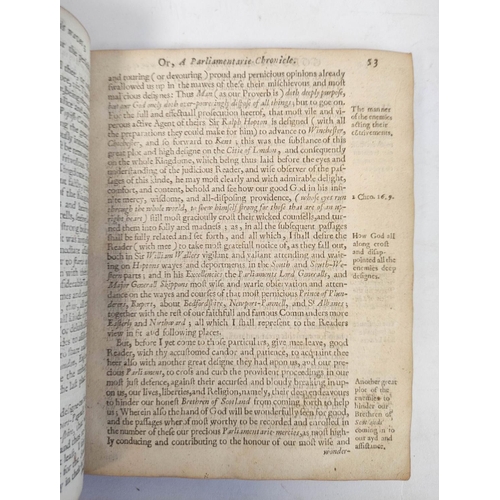 Or, A Parliamentarie Chronicle. 53
and roaring (or devouring) proud and pernicious opinions already
swallowed us up in the mawes of these their mischievous and most
malicious designes: Thus Man (as our Proverb is) doth deeply purpose,
but our God onely doth over-poweringly dispose of all things; but to goe on.
For the full and effectuall prosecution heerof, that most vile and vi-
perous active Agent of theirs Sir Ralph Hopton is designed (with all
the preparations they could make for him) to advance to Winchester,
Chichester, and so forward to Kent; this was the substance of this
great plot and high designe on the Citie of London, and consequently
on the whole Kingdome, which being thus laid before the eyes and
understanding of the judicious Reader, and wise observer of the pas-
sages of this kinde, he may most clearly and with admirable delight,
comfort, and content, behold and see how our good God in his infi-
nite mercy, wisdome, and all-disposing providence, (whose eyes run
through the whole world, to shew himself strong for those that are of an up-
right heart) still most graciously crost their wicked counsells, and turn-
ed them into folly and madnes; as, in all the subsequent passages
shall be fully related and set forth, and all which, I shall desire the
Reader (with mee) to take most gratefull notice of, as they fall out,
both in Sir William Wallers vigilant and valiant attending and wait-
ing on Hoptons wayes and deportments in the South and South-Wes-
tern parts; and in his Excellencies the Parliaments Lord Generalls, and
Major Generall Skippons most wise, and warie observation and atten-
dance on the wayes and courses of that most pernicious Prince of Plun-
derers, Rupert, about Bedfordshire, Newport-Pannell, and St Albanes;
together with the rest of our faithfull and famous Commanders more
Easterly and Northward; all which I shall represent to the Readers
view in fit and following places.
But, before I yet come to those particulars, give me leave, good
Reader, with thy accustomed candor and patience, to acquaint thee
heer also with another great designe they had upon us, and our pre-
cious Parliament, to crosse and curb the provident proceedings in our
most just defence, against their accursed and bloudy breaking in up-
on us, our lives, liberties, and Religion, namely, their deep endeavours
to hinder our honest Brethren of Scotland from coming forth to help
us; Wherein also the hand of God will be wonderfully seen for good,
and the passages wherof most worthy to be recorded and enrolled in
the number of these our precious Parliamentarie-mercies, as most high-
ly conducing and contributing to the honour of our most wise and
wonder-
The manner
of the enemies
acting their
atchivements.
2 Chro. 16.9.
How God all
along crost
and disap-
pointed all the
enemies deep
designes.
Another great
plot of the
enemies to
hinder our
Brethren of
Scotland
coming in to
our ayd and
assistance.